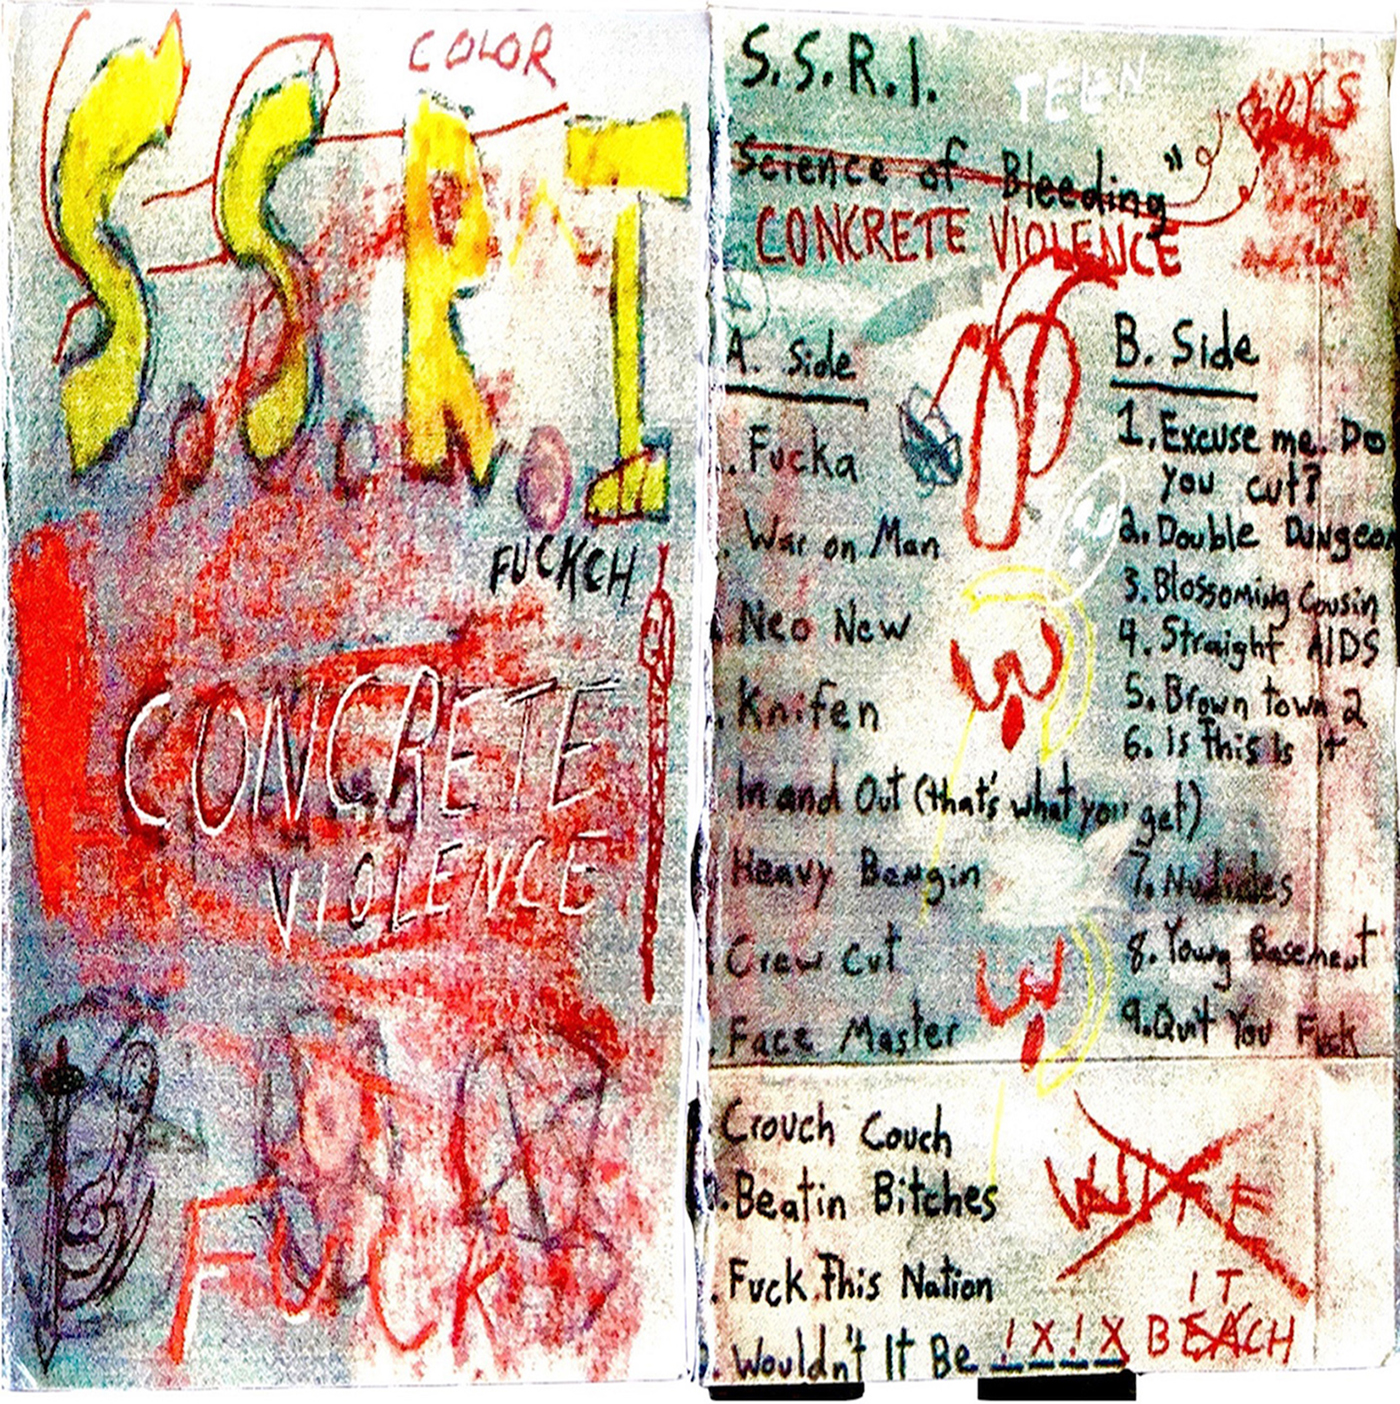 COLOR
S.S.R.I
FUCKCH
CONCRETE
VIOLENCE
FUCK
S.S.R.I.
TEEN
BOYS
Science of Bleeding"
CONCRETE VIOLENCE
A. Side
. Fucka
. War on Man
Neo New
. Knifen
In and Out (that's what you get)
Heavy Bangin
Crew Cut
. Face Master
Crouch Couch
. Beatin Bitches
. Fuck This Nation
. Wouldn't It Be ! X ! X BEACH
IT
B. Side
1. Excuse me. Do
you cut?
2. Double Dungeon
3. Blossoming Cousin
4. Straight AIDS
5. Brown town 2
6. Is This Is It
7.
8. Young Basement
9. Quit You Fuck